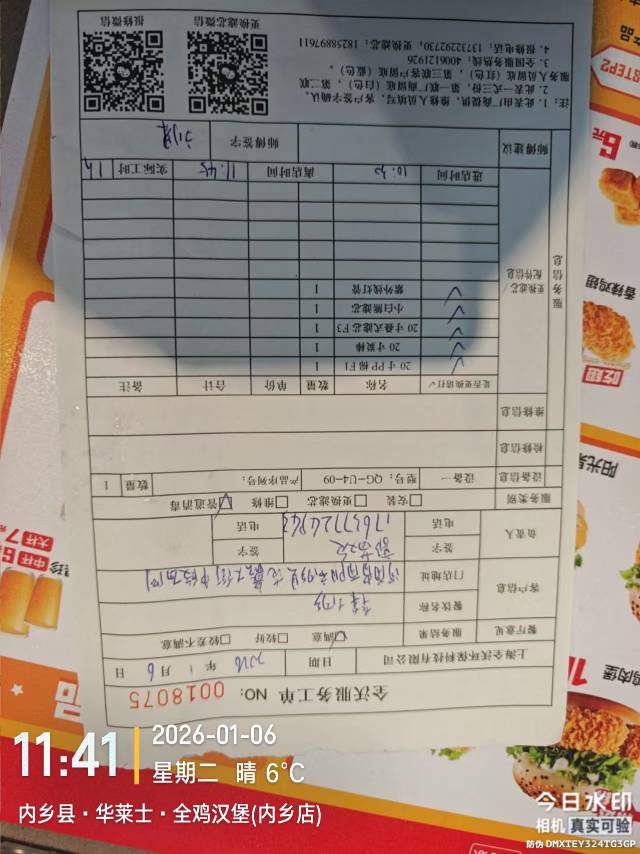 全沃服务工单 NO: 0018075
上海全沃环保科技有限公司 日期 2026 年 1 月 6 日
餐厅意见 服务结果 ☑满意 □较好 □较差不满意
客户信息 餐饮名称
门店地址
负责人 签字 签字
电话 电话
服务类别 □安装 □更换滤芯 □维修 ☑管道消毒
设备信息 设备一 型号: QG-U4-09 产品序列号: 数量 1
检修信息
维修信息
服务信息
更换滤芯/配件信息
是否更换请打√ 名称 数量 单价 合计 备注
✓ 20寸PP棉F1 1
✓ 20寸炭棒 1
✓ 20寸叠式滤芯F3 1
✓ 小白熊滤芯 1
✓ 紫外线灯管 1
进店时间 10:30 离店时间 11:45 实际工时 1h
师傅建议 师傅签字
注: 1. 此表由厂商提供, 维修人员填写, 客户签字确认。
2. 此表一式三份, 第一联厂商留底(白色), 第二联
服务人员留底(红色), 第三客联户留底(蓝色)。
3. 全国服务热线: 4006121926
4. 报修电话: 13732292730; 更换滤芯: 18258897611
更换滤芯微信 报修微信
STEP2
6元
香辣鸡翅
吃翅
阳光
鸡肉堡
中杯6
大杯7
11:41
2026-01-06
星期二 晴 6°C
内乡县·华莱士·全鸡汉堡(内乡店)
今日水印
相机 真实可验
防伪 DMXTEY324TG3GP